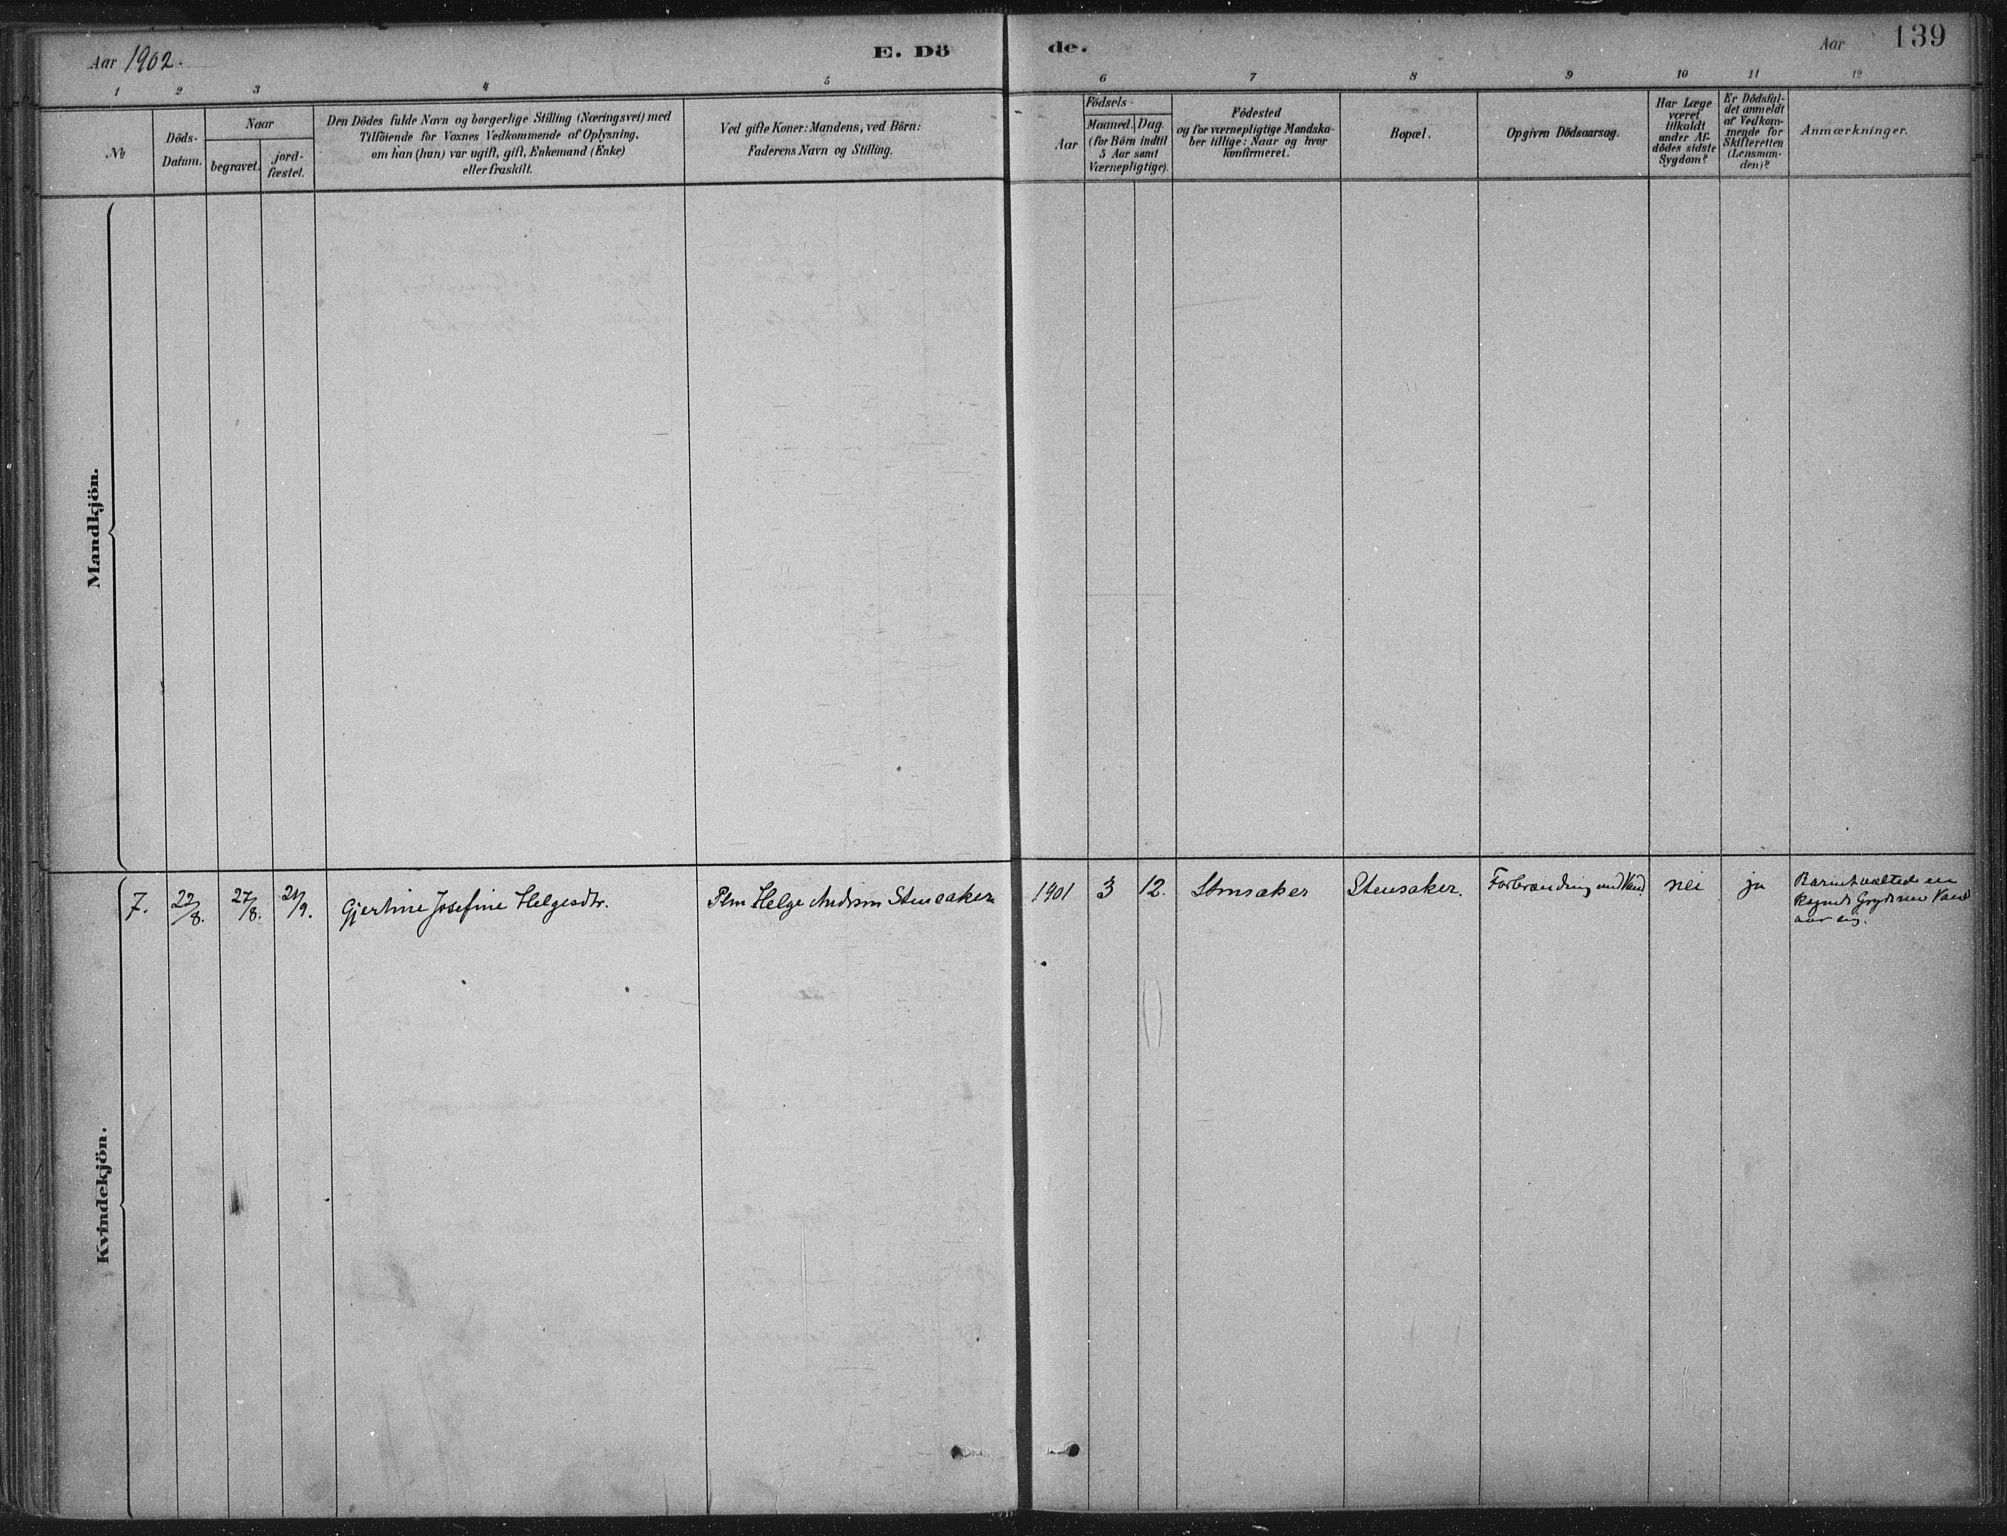 Aar 1902.
E. Dö
de.
Aar
139
1 2 3 4 5
6 7 8 9 10 11 12
No
Döds-
Datum.
Naar
begravet.
jord-
fæstet.
Den Dödes fulde Navn og borgerlige Stilling (Næringsvei) med
Tilföiende for Voxnes Vedkommende af Oplysning,
om han (hun) var ugift, gift, Enkemand (Enke)
eller fraskilt.
Ved gifte Koner: Mandens, ved Börn:
Faderens Navn og Stilling.
Aar
Födsels-
Maaned. Dag.
(for Börn indtil
5 Aar samt
Værnepligtige).
Födested
og for værnepligtige Mandska-
ber tillige: Naar og hvor
konfirmeret.
Bopæl.
Opgiven Dödsaarsag.
Har Læge
været
tilkaldt
under Af-
dödes sidste
Sygdom?
Er Dödsfal-
det anmeldt
af Vedkom-
mende for
Skifteretten
(Lensman-
den)?
Anmærkninger.
Mandkjön.
Kvindekjön.
7. 22/8. 27/8. 21/9. Gjertine Josefine Helgesdtr. Plm Helge Andersen Stensaker 1901 3 12. Stensaker Stensaker. Forbrænding med Vand nei ja
Barnet væltede en
kogende Gryde med Vand
over sig.